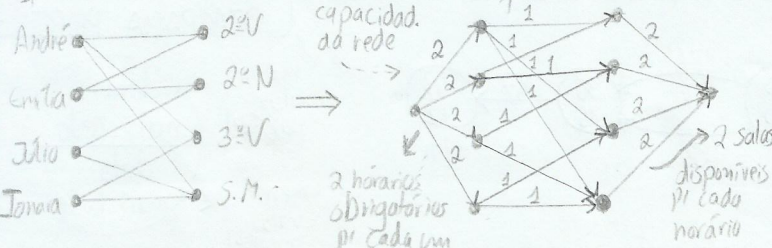 André
Emília
Júlio
Tonaia
2ªV
2ªN
3ªV
S.M.
capacidad.
da rede
2
2
2
2
1
1
1
1
1
1
1
2
2
2
2
2 horários
obrigatórios
p/ cada um
2 salas
disponíveis
p/ cada
horário